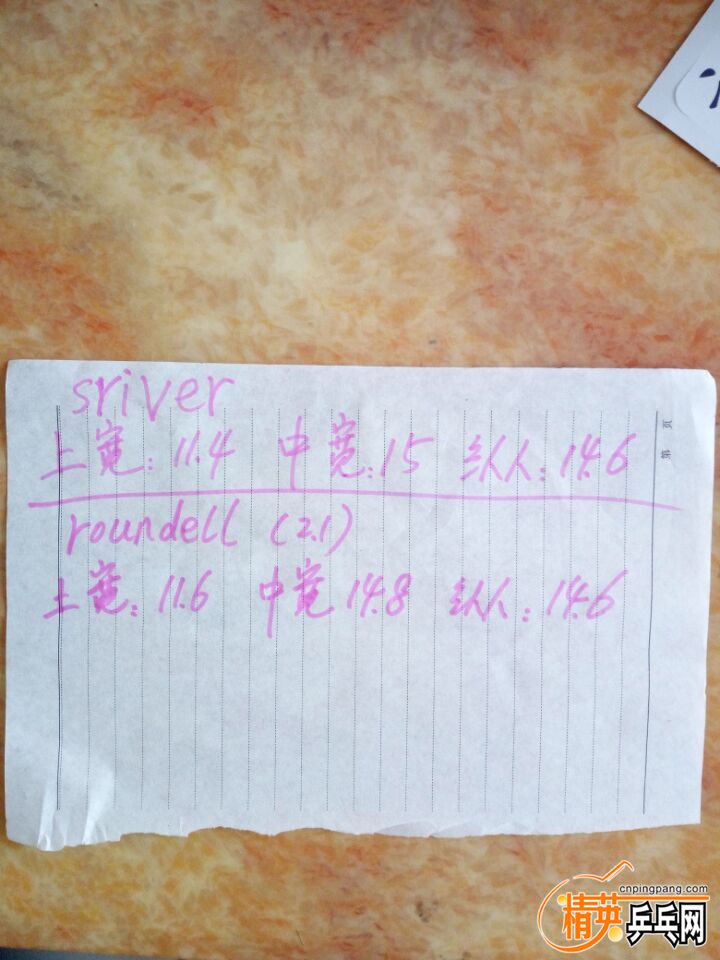 sriver
上宽：11.4 中宽：15 纵：14.6
roundell (2.1)
上宽：11.6 中宽 14.8 纵：14.6
第 页
cnpingpang.com
精英乒乓网